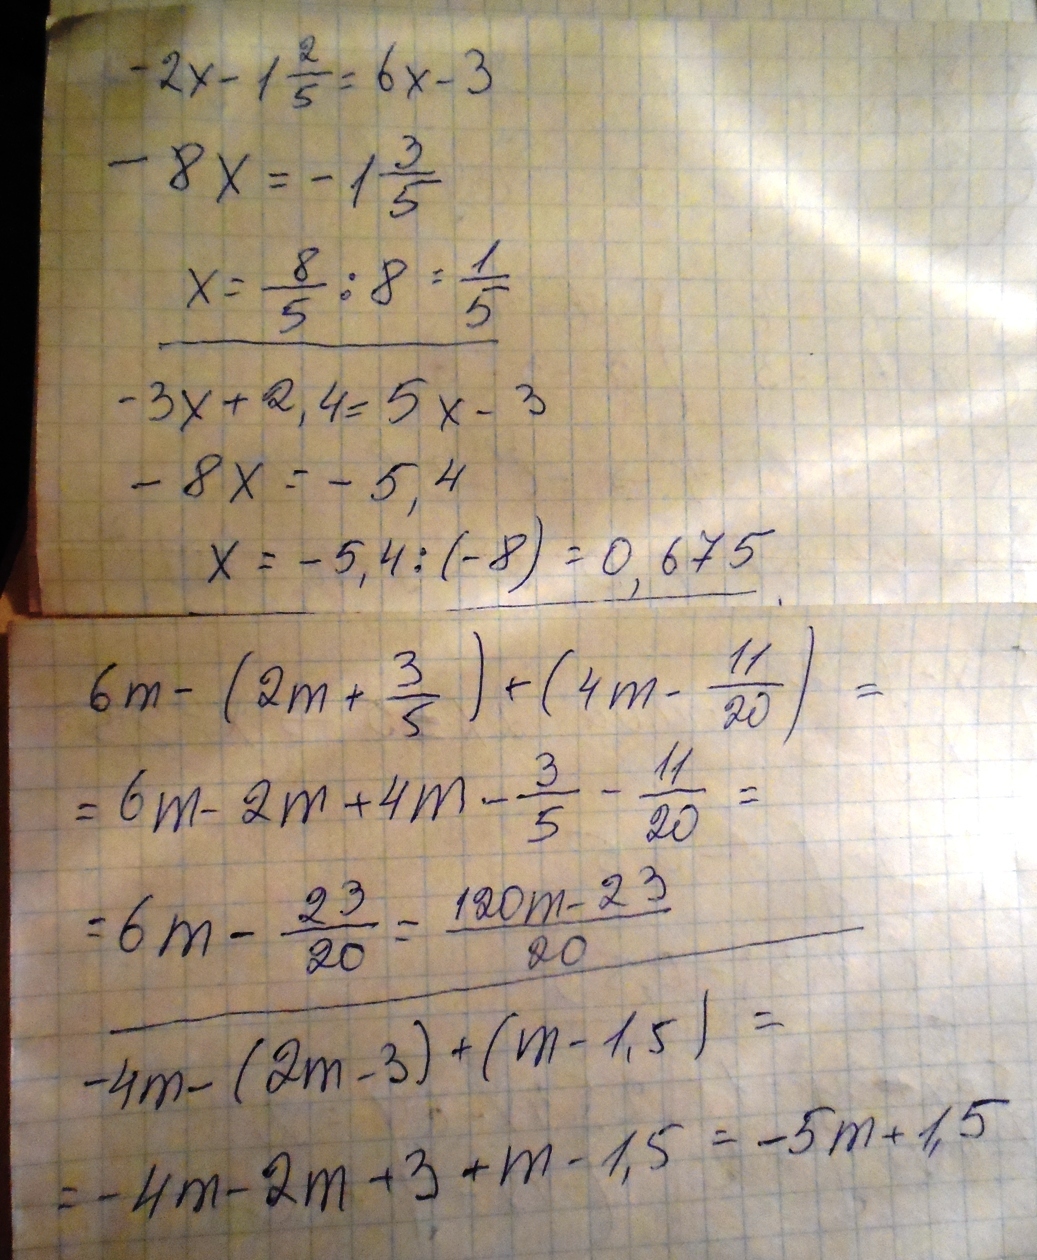 -2x - 1 2/5 = 6x - 3
-8x = -1 3/5
x = 8/5 : 8 = 1/5
-3x + 2,4 = 5x - 3
-8x = -5,4
x = -5,4 : (-8) = 0,675
6m - (2m + 3/5) + (4m - 11/20) =
= 6m - 2m + 4m - 3/5 - 11/20 =
= 6m - 23/20 = 120m - 23/20
-4m - (2m - 3) + (m - 1,5) =
= -4m - 2m + 3 + m - 1,5 = -5m + 1,5